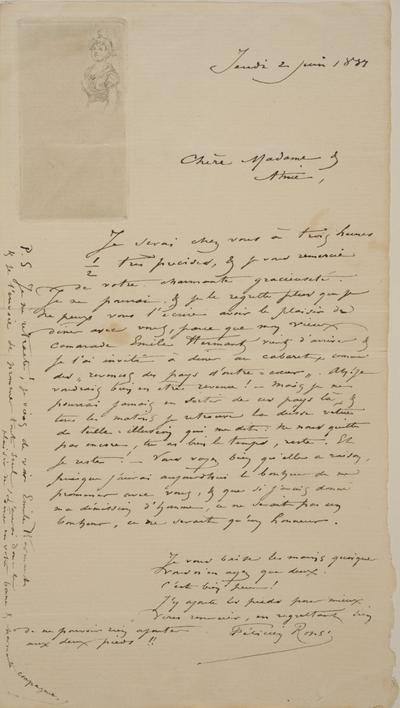 Jeudi 2 juin 1887
Chère Madame &
Amie,
Je serai chez vous à trois heures
1/2 très précises, & je vous remercie
de votre charmante gracieuseté.
Je ne pourrai, & je le regrette plus que je
ne peux vous l'écrire avoir le plaisir de
dîner avec vous, parce que mon vieux
camarade Emile Hermant vient d'arriver &
je l'ai invité à dîner au cabaret, comme
des « revenus des pays d'outre-cœur ».
voudrais bien en être revenu! – Mais je ne
pourrai jamais en sortir de ces pays là, &
tous les matins je retrouve la déesse vêtue
de tulle-illusion qui me dit: Ne nous quitte
pas encore, tu as bien le temps, reste! Et
je reste! – Vous voyez bien qu'elle a raison,
puisque j'aurai aujourd'hui le bonheur de me
promener avec vous, & que si j'avais donné
ma démission d'homme, ce ne serait pas un
bonheur, ce ne serait qu'un honneur.
Je vous baise les mains quoique
vous n'en ayez que deux
C'est bien peu!
J'y ajoute les pieds pour mieux
vous remercier, en regrettant
de ne pouvoir rien ajouter
aux deux pieds!!
Félicien Rops
P.S. Je me rétracte! je viens de voir Emile Hermant